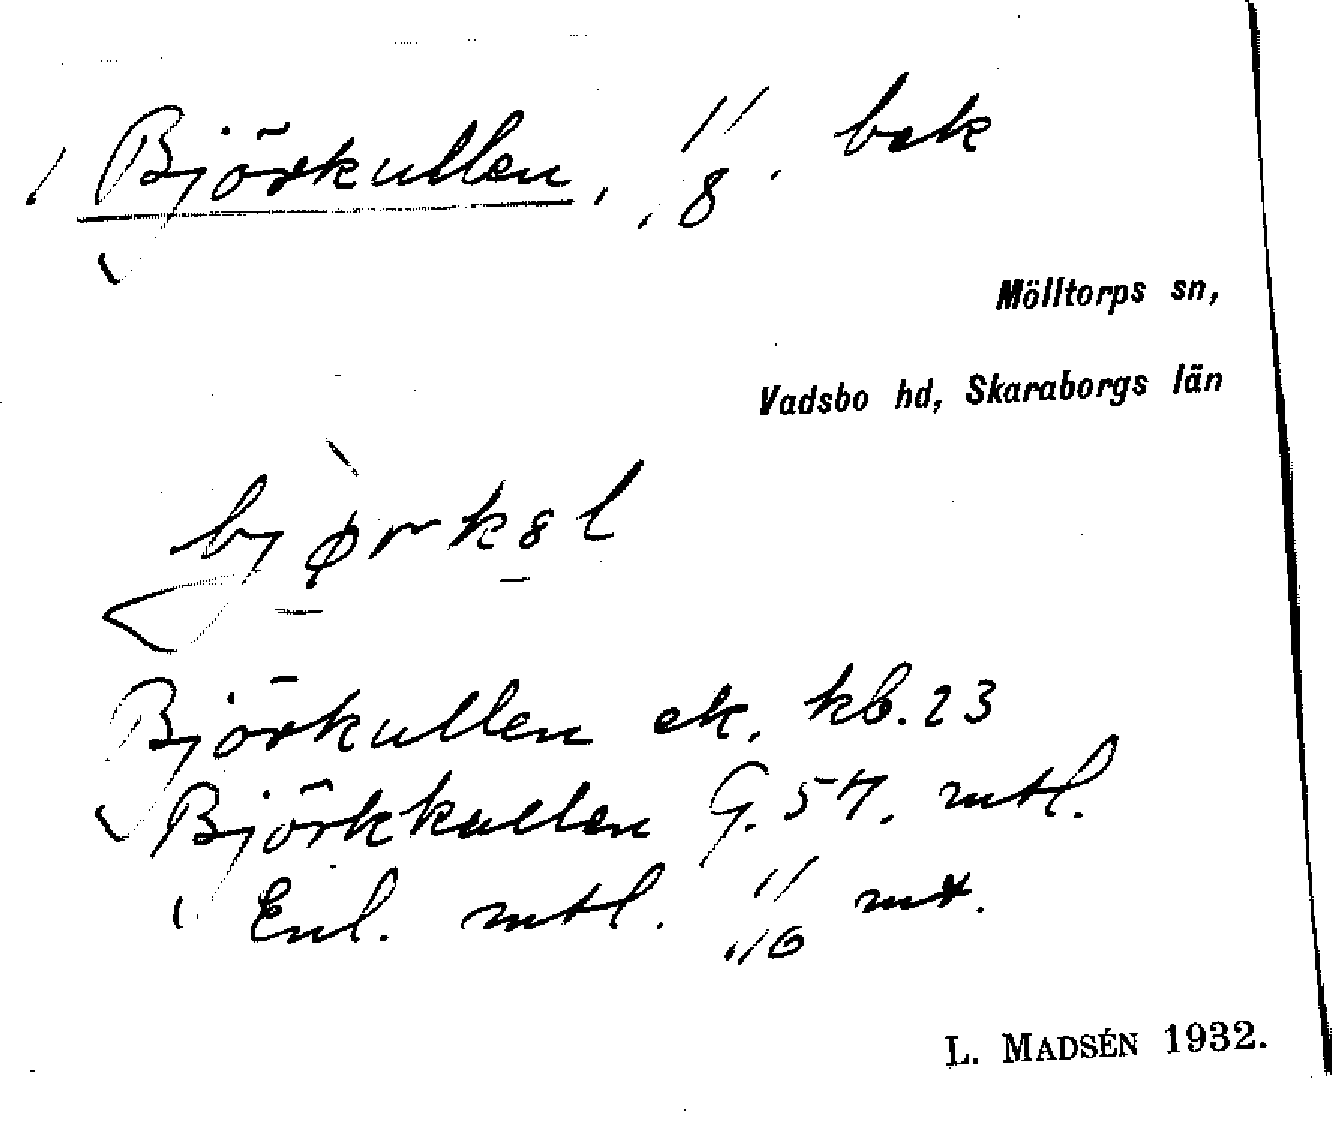 Björkullen, 1/8. bek
Mölltorps sn,
Vadsbo hd, Skaraborgs län
Björkullen ek. kb. 23
Björkkullen G. 57. mtl.
Enl. mtl. 1/16 mt.
L. MADSÉN 1932.